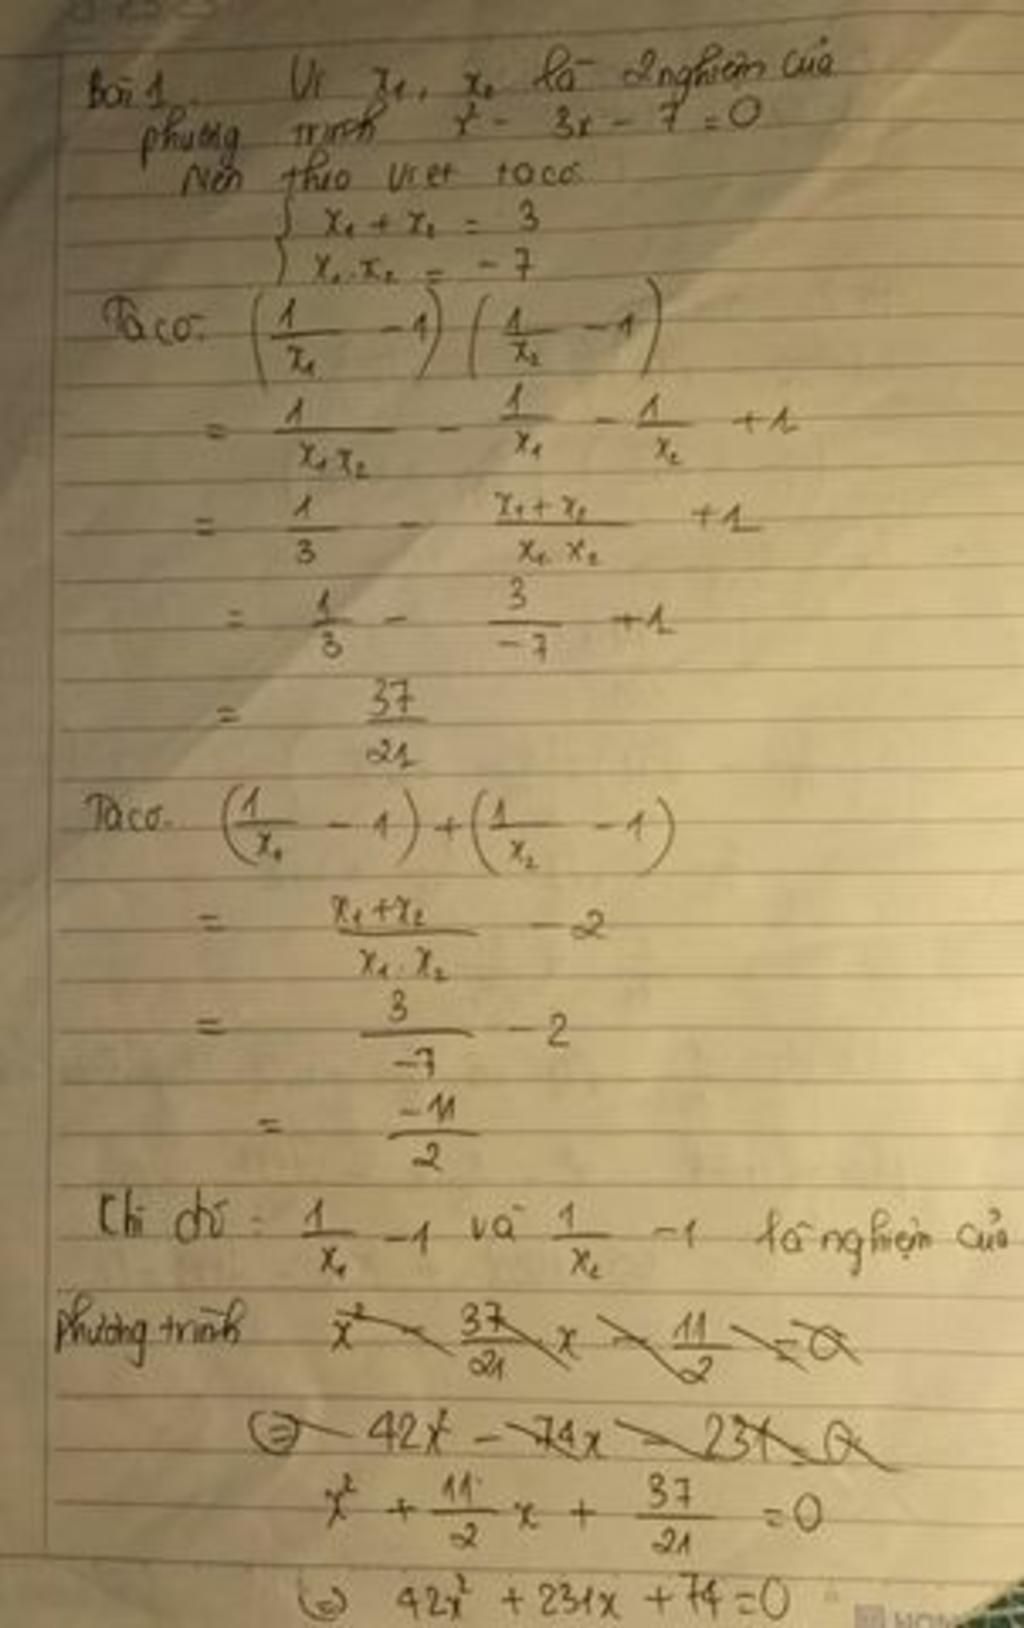 Bài 1. Vì x₁, x₂ là 2 nghiệm của
phương trình x² - 3x - 7 = 0
Nên theo Viet ta có
{ x₁ + x₂ = 3
x₁.x₂ = -7
Ta có: (1/x₁ - 1) (1/x₂ - 1)
= 1/(x₁x₂) - 1/x₁ - 1/x₂ + 1
= 1/3 - (x₁+x₂)/(x₁x₂) + 1
= 1/3 - 3/(-7) + 1
= 37/21
Ta có. (1/x₁ - 1) + (1/x₂ - 1)
= (x₁+x₂)/(x₁.x₂) - 2
= 3/(-7) - 2
= -11/2
Khi đó: 1/x₁ - 1 và 1/x₂ - 1 là nghiệm của
phương trình x² - 37/21 x - 11/2 = 0
⇔ 42x² - 74x - 231 = 0
x² + 11/2 x + 37/21 = 0
⇔ 42x² + 231x + 74 = 0